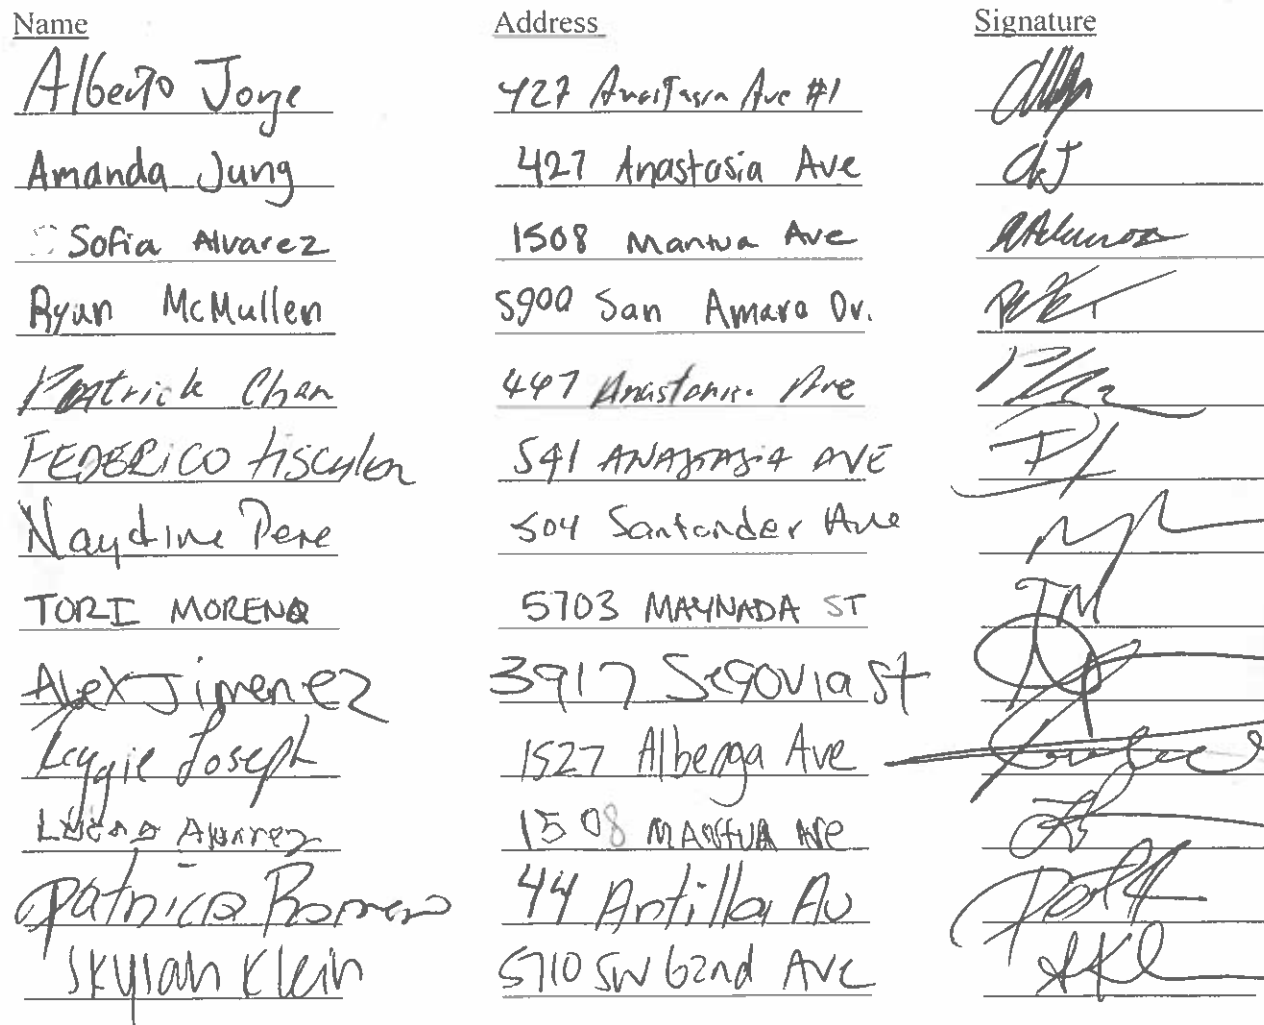 Name Address Signature
Alberto Jorge 427 Anastasia Ave #1
Amanda Jung 427 Anastasia Ave AJ
Sofia Alvarez 1508 Mantua Ave
Ryan McMullen 5900 San Amaro Dr.
Patrick Chen 447 Ave
FEDERICO 541 ANASTASIA AVE
Naydine Pere 504 Santander Ave
TORI MORENO 5703 MAYNADA ST TM
Alex Jimenez 3917 Segovia St
Reggie Joseph 1527 Alberga Ave
Alvarez 1508 MANTUA Ave
Patricia Romero 44 Antilla Av
Skylah Klein 5710 SW 62nd Ave